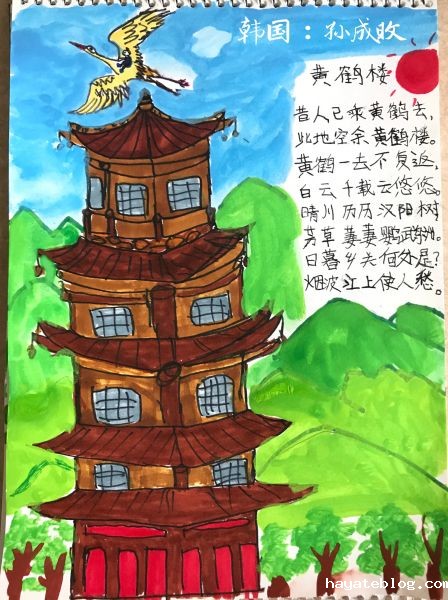 韩国：孙成旼
黄鹤楼
昔人已乘黄鹤去，
此地空余黄鹤楼。
黄鹤一去不复返，
白云千载云悠悠。
晴川历历汉阳树
芳草萋萋鹦鹉洲。
日暮乡关何处是？
烟波江上使人愁。
hayateblog.com